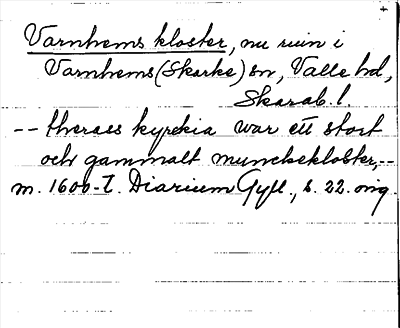 Varnhems kloster, nu ruin i
Varnhems (Skarke) sn, Valle hd,
Skarab. l.
-- theraes kyrckia war ett stort
och gammalt munckekloster,--
m. 1600-t. Diarium Gyll., s. 22. orig.